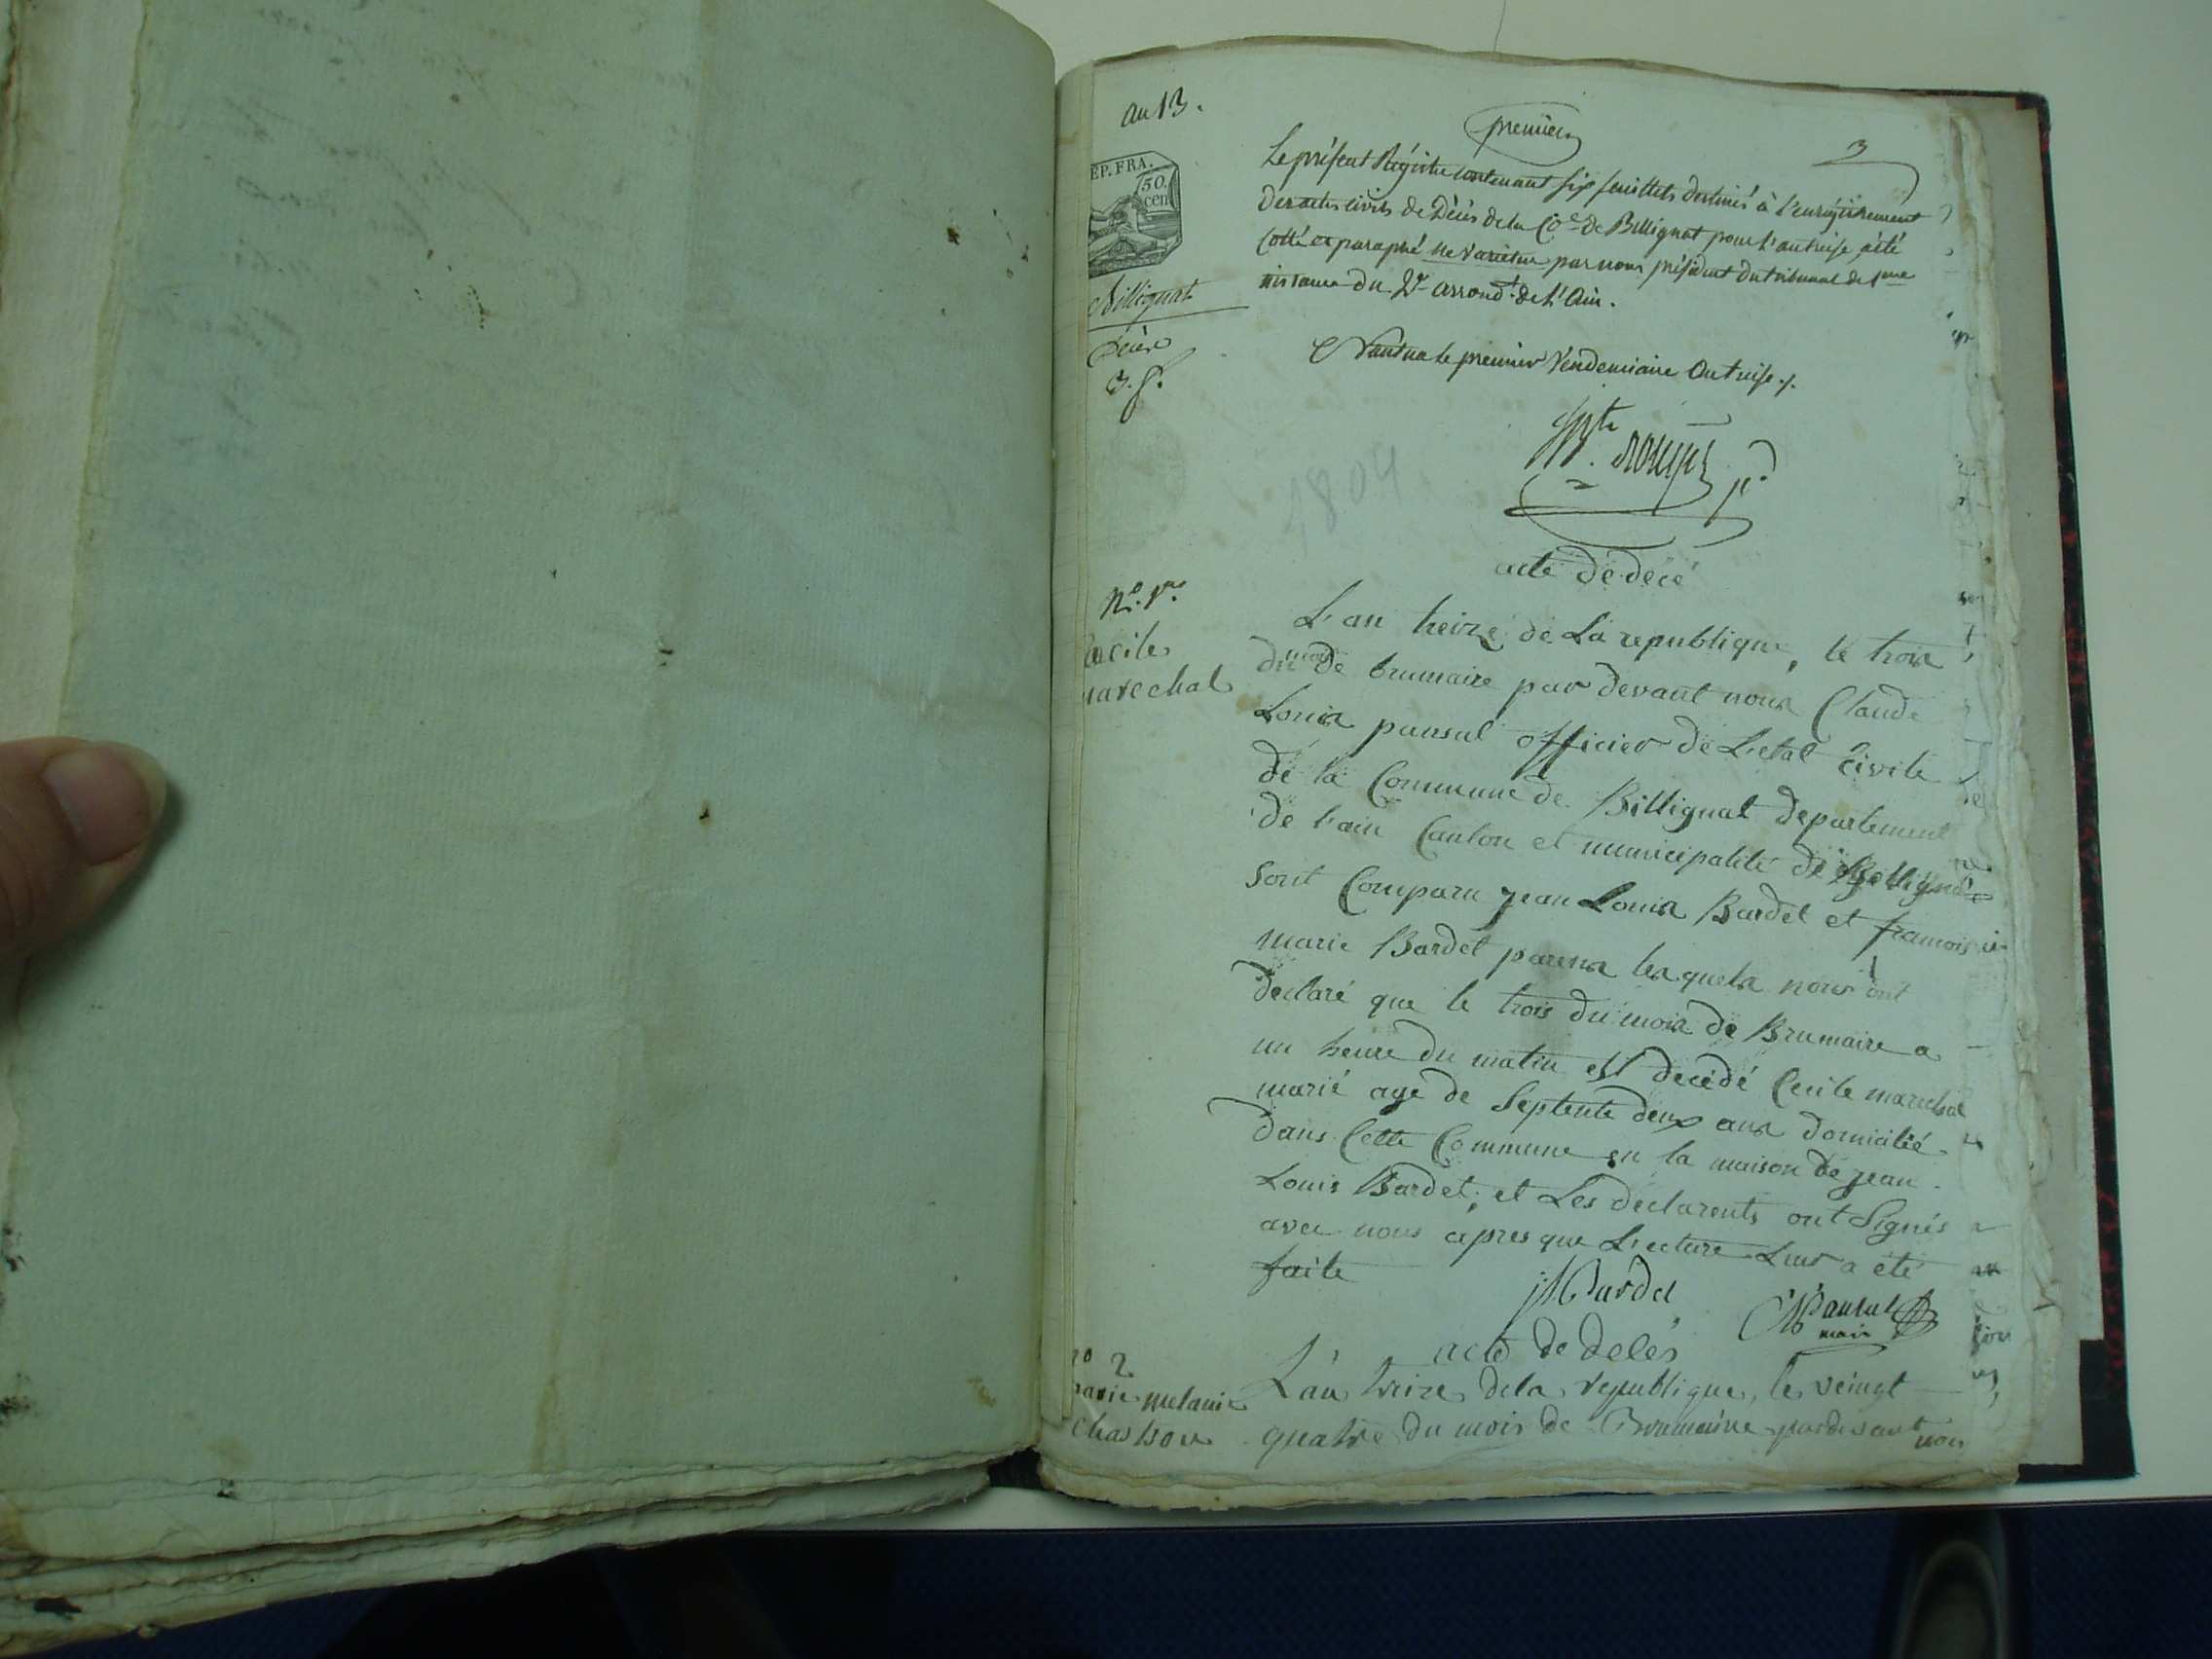 an 13.
premier
3
EP. FRA.
50.
cen
Le présent Régistre contenant six feuillets destinés à l'enrégistrement
des actes civils de Décès de la Co.e de Billignat pour l'an treise, a été
Cotté et paraphé ne varietur par nous président du tribunal de 1ere
instance du 2e arrond.t de l'Ain.
Billignat
Décès
3. f.
Nantua le premier Vendemiaire An treise ./.
1804
acte de décé
No. 1er
Cecile
marechal
L'an treize de La republique, le trois
du mois de brumaire par devant nous Claude
Louis pansut officier de L'etat civile
de la Commune de Billignat departement
de l'ain Canton et municipalité de
Sont Comparu jean Louis Bardet et francois
marie Bardet parens lesquels nous ont
declaré que le trois du mois de Brumaire a
un heure du matin est décédé Cecile marechal
marié agé de Septente deux ans domicilié
dans Cette Commune en la maison de jean
Louis Bardet, et Les declarents ont Signés
avec nous apres que Lecture Leur a été
faite
Bardet
Pansut
mair
acte de deces
no 2
marie melanie
L'an treize de la republique, le veingt
quatre du mois de Brumaire pardevant nous